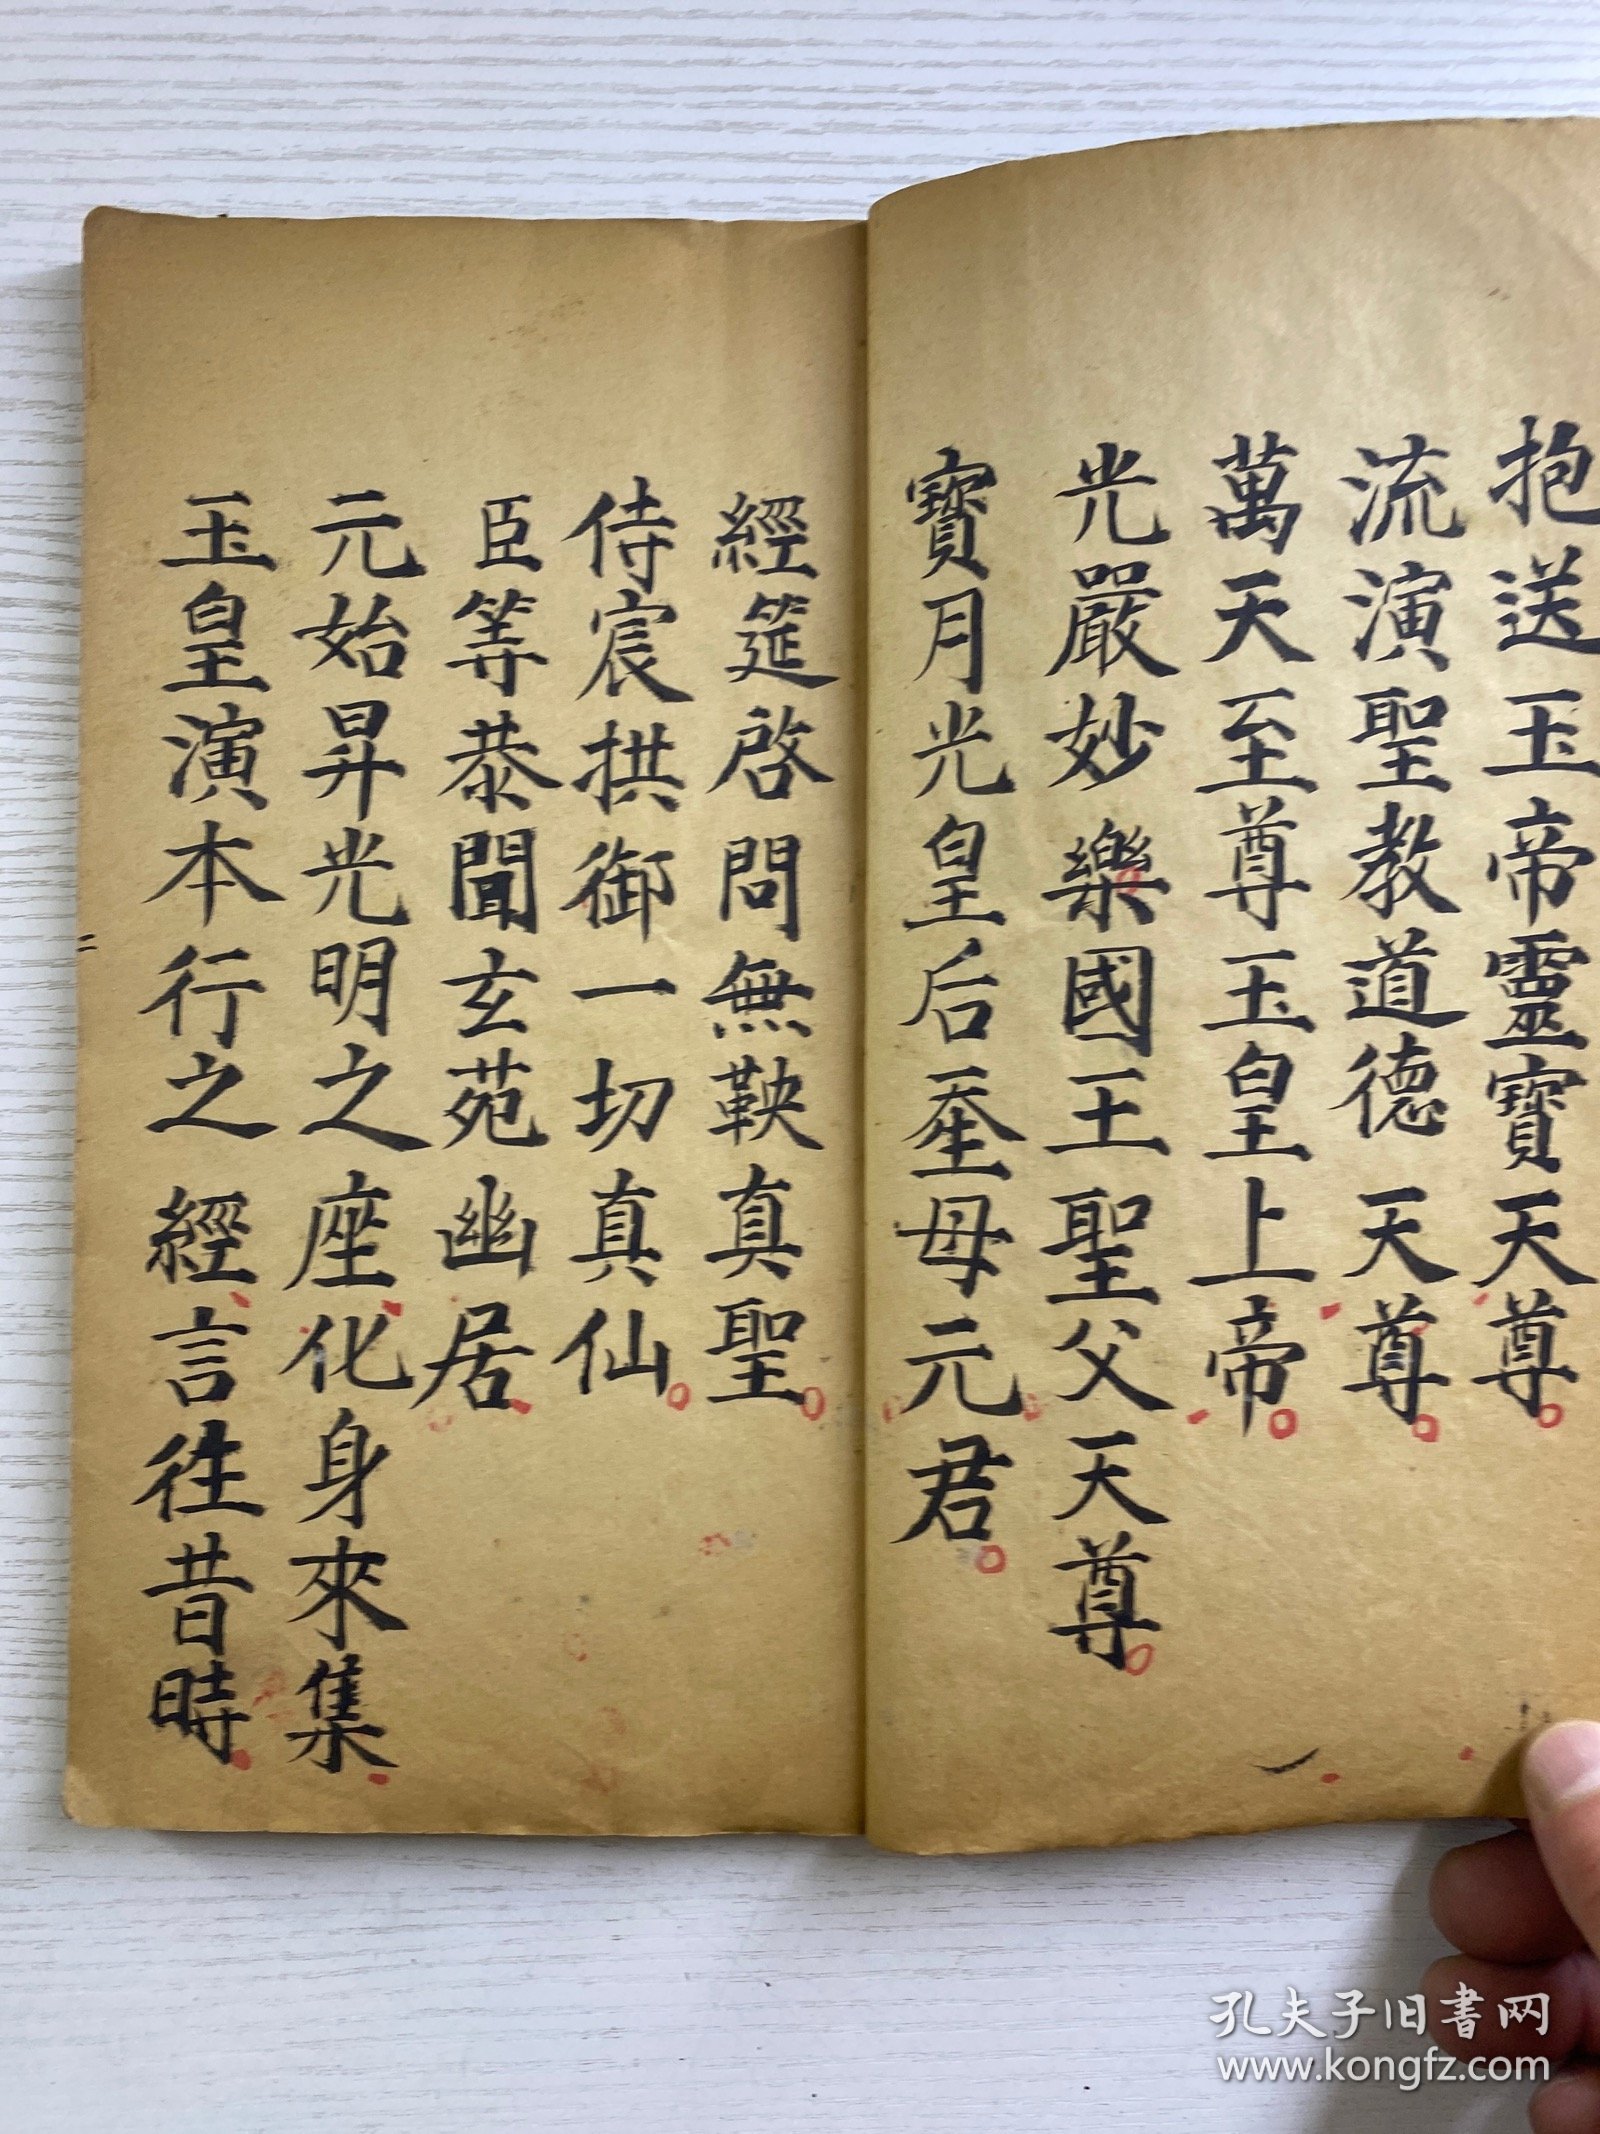 抱送玉帝靈寶天尊
流演聖教道德天尊
萬天至尊玉皇上帝
光嚴妙樂國王聖父天尊
寶月光皇后聖母元君
經筵啓問無鞅真聖
侍宸拱御一切真仙
臣等恭聞玄苑幽居
元始昇光明之座化身來集
玉皇演本行之經言徃昔時
孔夫子旧書网
www.kongfz.com